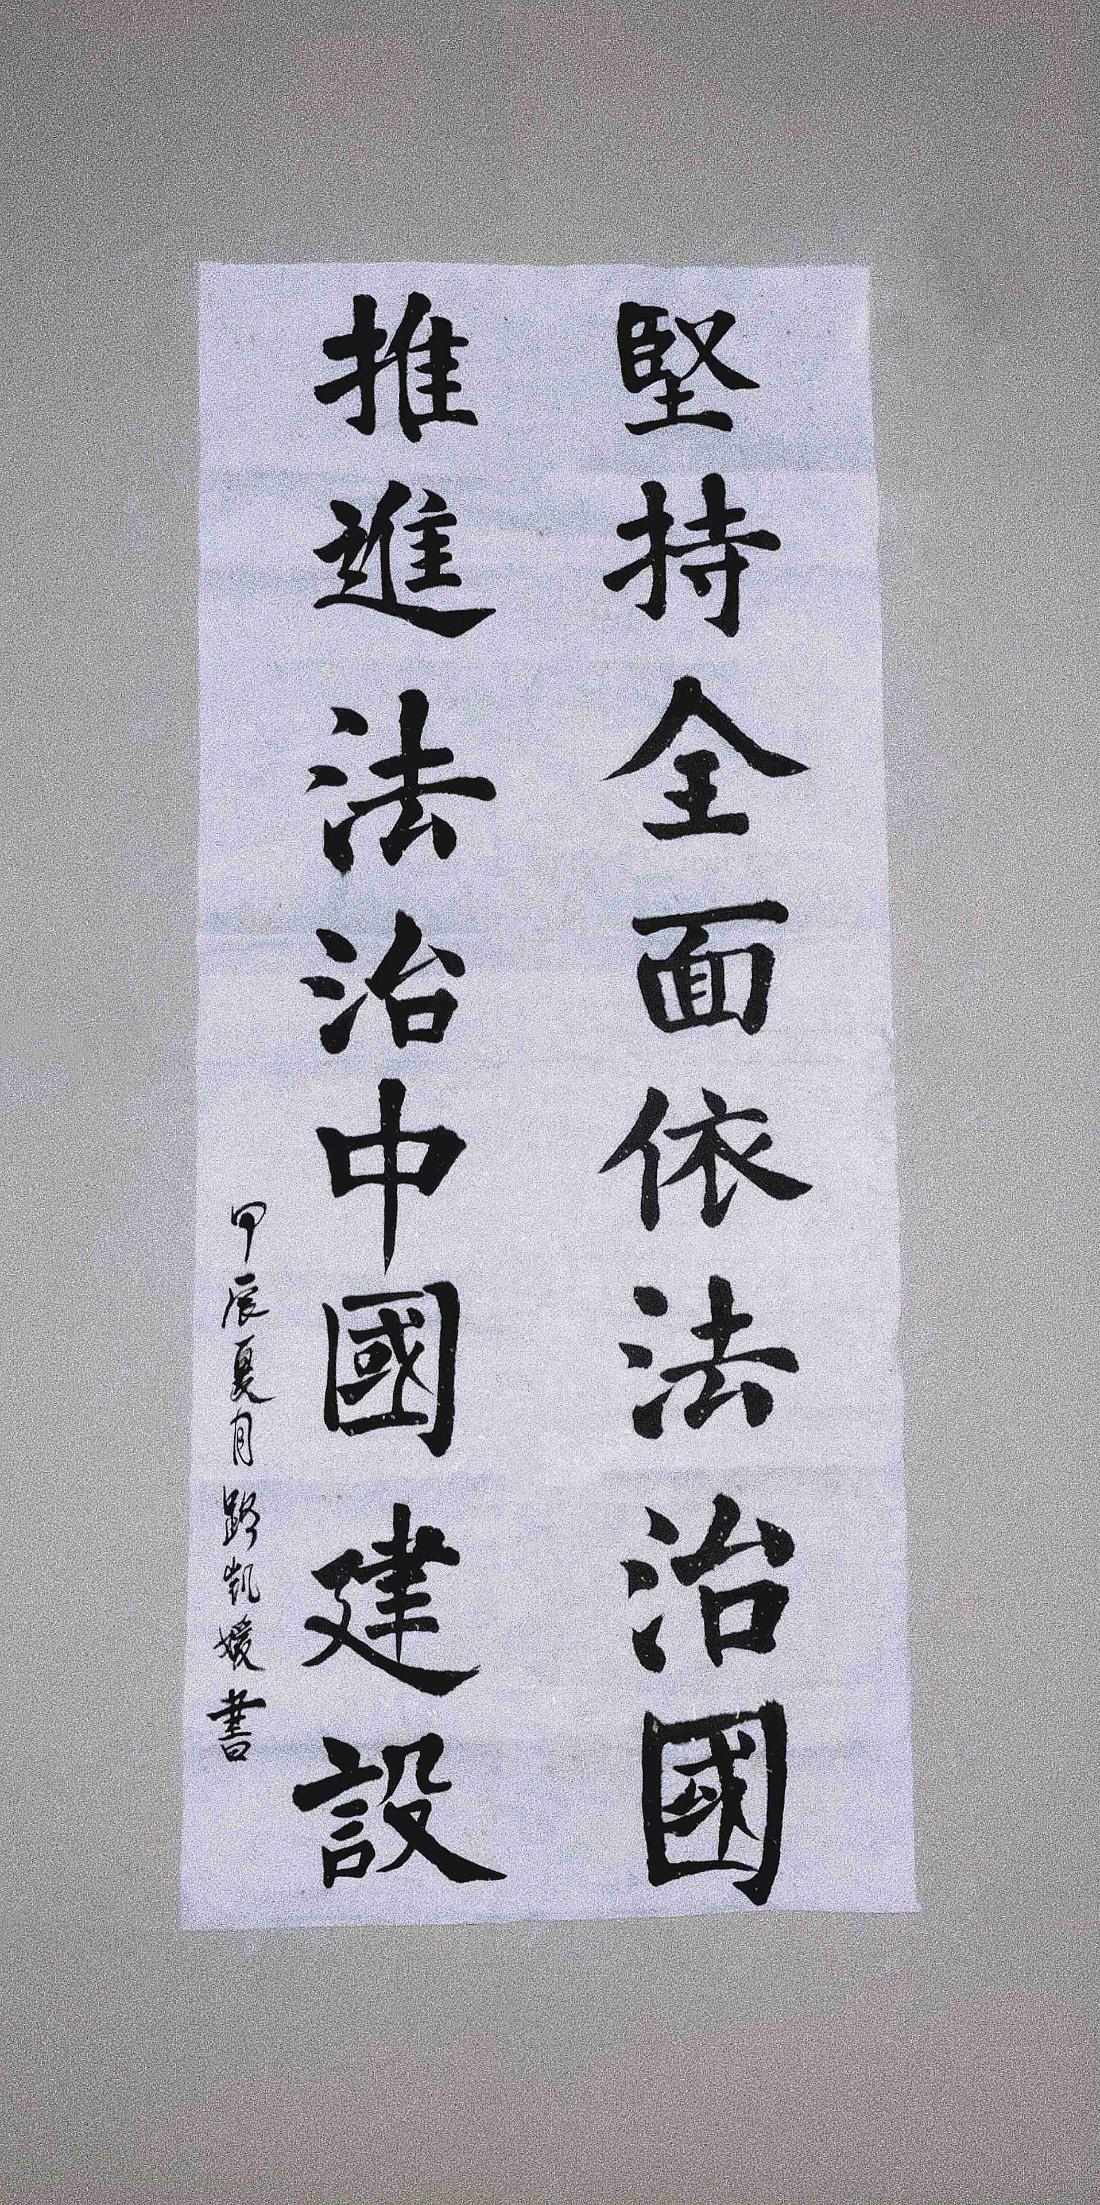 堅持全面依法治國
推進法治中國建設
甲辰夏月路凱媛書